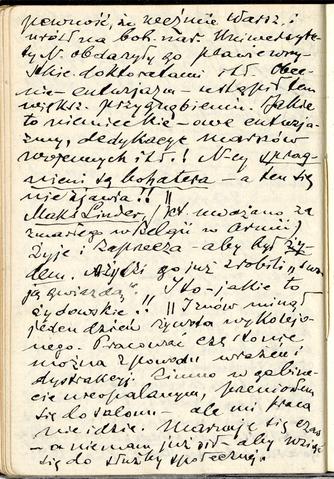 pewność, że weźmie Warsz. i
wróci na boh. nar. Uniwersyte-
ty N. obdarzyły go prawiewszy-
stkie doktoratami itd. Obec-
nie - entuzjazm - ustąpił tem
większ. przygnębieniu. Jakie
to niemieckie - owe entuzja-
zmy, dedykacje marszów
wojennych itd.! N-cy sprag-
nieni są bohatera - a ten się
nie zjawia!! ||
Maks Linder, jest uważano za
zmarłego w Belgii w Armii,
Żyje i zaprzecza - aby był Ży-
dem. Żydki go już zrobili „swo-
ją gwiazdą". I to - jakie to
żydowskie!! || Znów minął
jeden dzień żywota wykoleje-
nego. Pracować czasto nie
można z powodu wrażeń i
dystrakcyj. Zimno w gabine-
cie nieopalanym, przeniosłem
się do salonu - ale mi praca
nie idzie. Marnuję się czas
- a nie mam już sił - aby wziąć
się do służby społecznej.